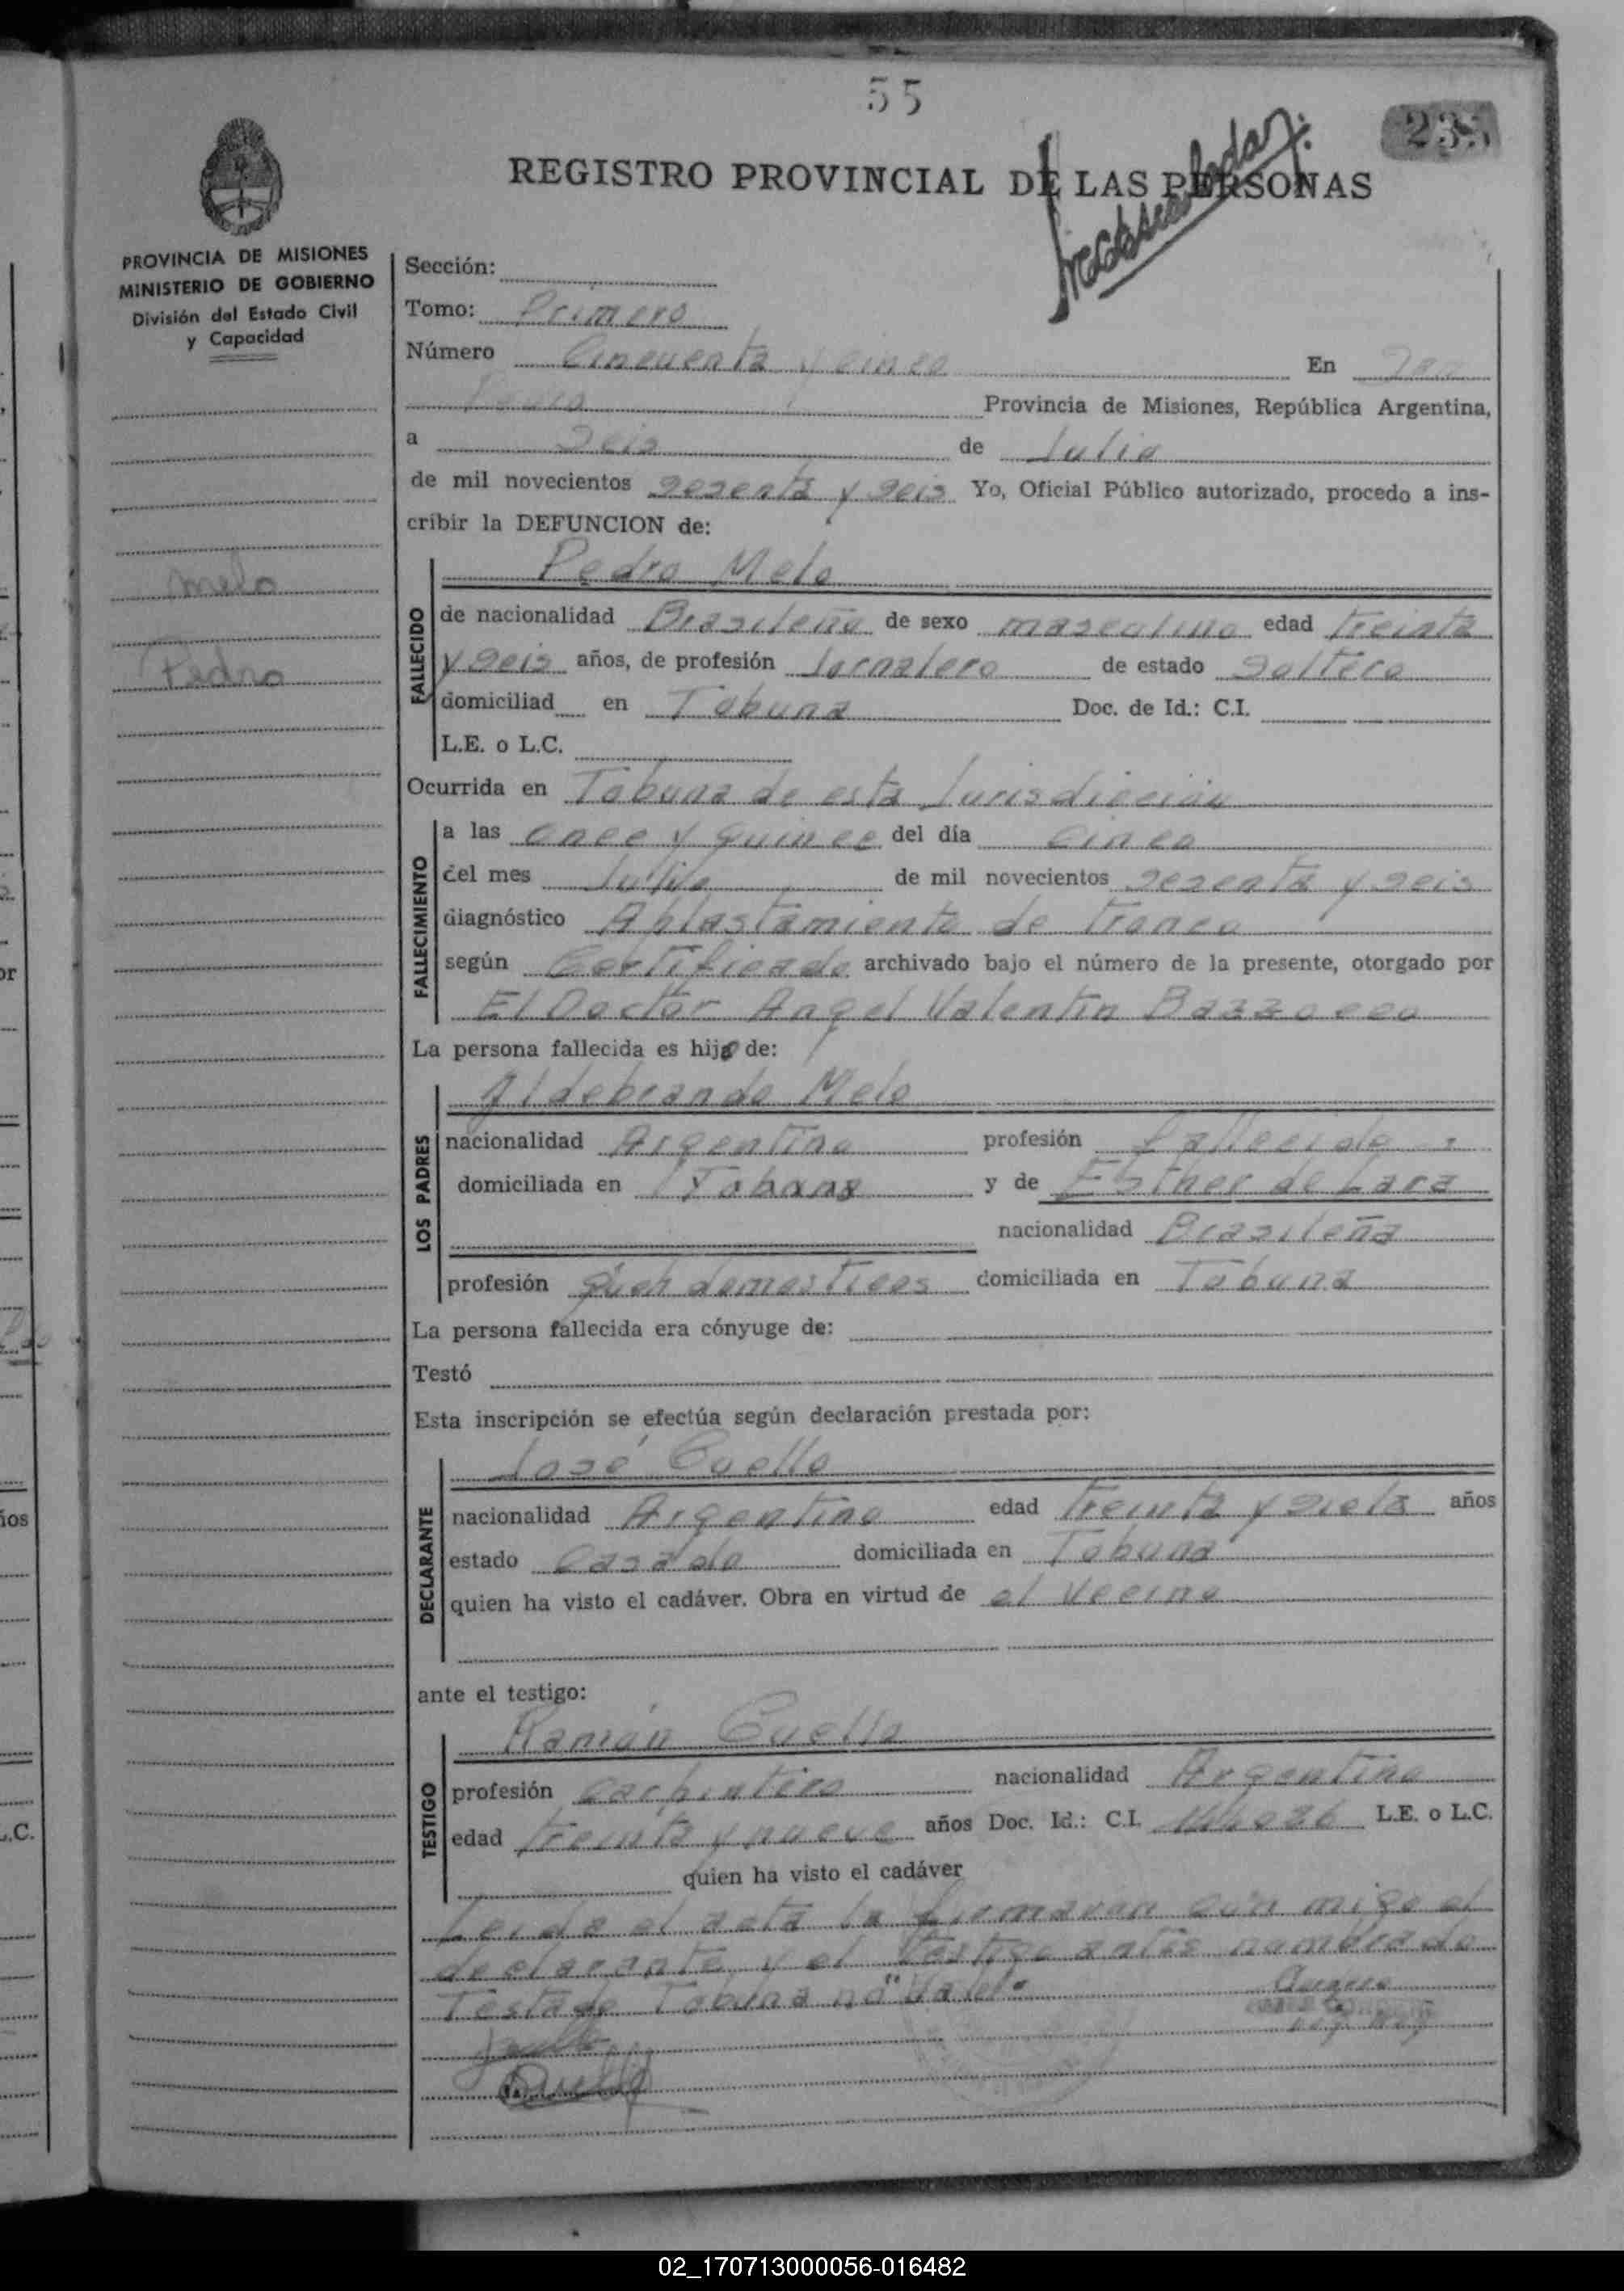 55
235
REGISTRO PROVINCIAL DE LAS PERSONAS
PROVINCIA DE MISIONES
MINISTERIO DE GOBIERNO
División del Estado Civil
y Capacidad
Melo
Pedro
Sección:
Tomo: Primero
Número Cincuenta y cinco En San
Pedro Provincia de Misiones, República Argentina,
a Seis de Julio
de mil novecientos sesenta y seis Yo, Oficial Público autorizado, procedo a ins-
cribir la DEFUNCION de:
FALLECIDO
Pedro Melo
de nacionalidad Brasileña de sexo masculino edad treinta
y seis años, de profesión Jornalero de estado soltero
domiciliad en Tobuna Doc. de Id.: C.I.
L.E. o L.C.
Ocurrida en Tobuna de esta Jurisdicción
FALLECIMIENTO
a las once y quince del día cinco
del mes Julio de mil novecientos sesenta y seis
diagnóstico Aplastamiento de tronco
según Certificado archivado bajo el número de la presente, otorgado por
El Doctor Angel Valentin
La persona fallecida es hijo de:
LOS PADRES
Ildebrando Melo
nacionalidad Argentino profesión fallecido
domiciliada en Tobuna y de Esther de Lara
nacionalidad Brasileña
profesión domesticos domiciliada en Tobuna
La persona fallecida era cónyuge de:
Testó
Esta inscripción se efectúa según declaración prestada por:
DECLARANTE
José Cuello
nacionalidad Argentino edad treinta y siete años
estado casado domiciliada en Tobuna
quien ha visto el cadáver. Obra en virtud de el vecino
ante el testigo:
TESTIGO
Ramón Cuello
profesión carpintero nacionalidad Argentino
edad treinta y nueve años Doc. Id.: C.I. L.E. o L.C.
quien ha visto el cadáver
Leida el acta la firmavan con migo el
declarante y el testigo antes nombrado
Testado Tobuna no "Vale"
02_170713000056-016482